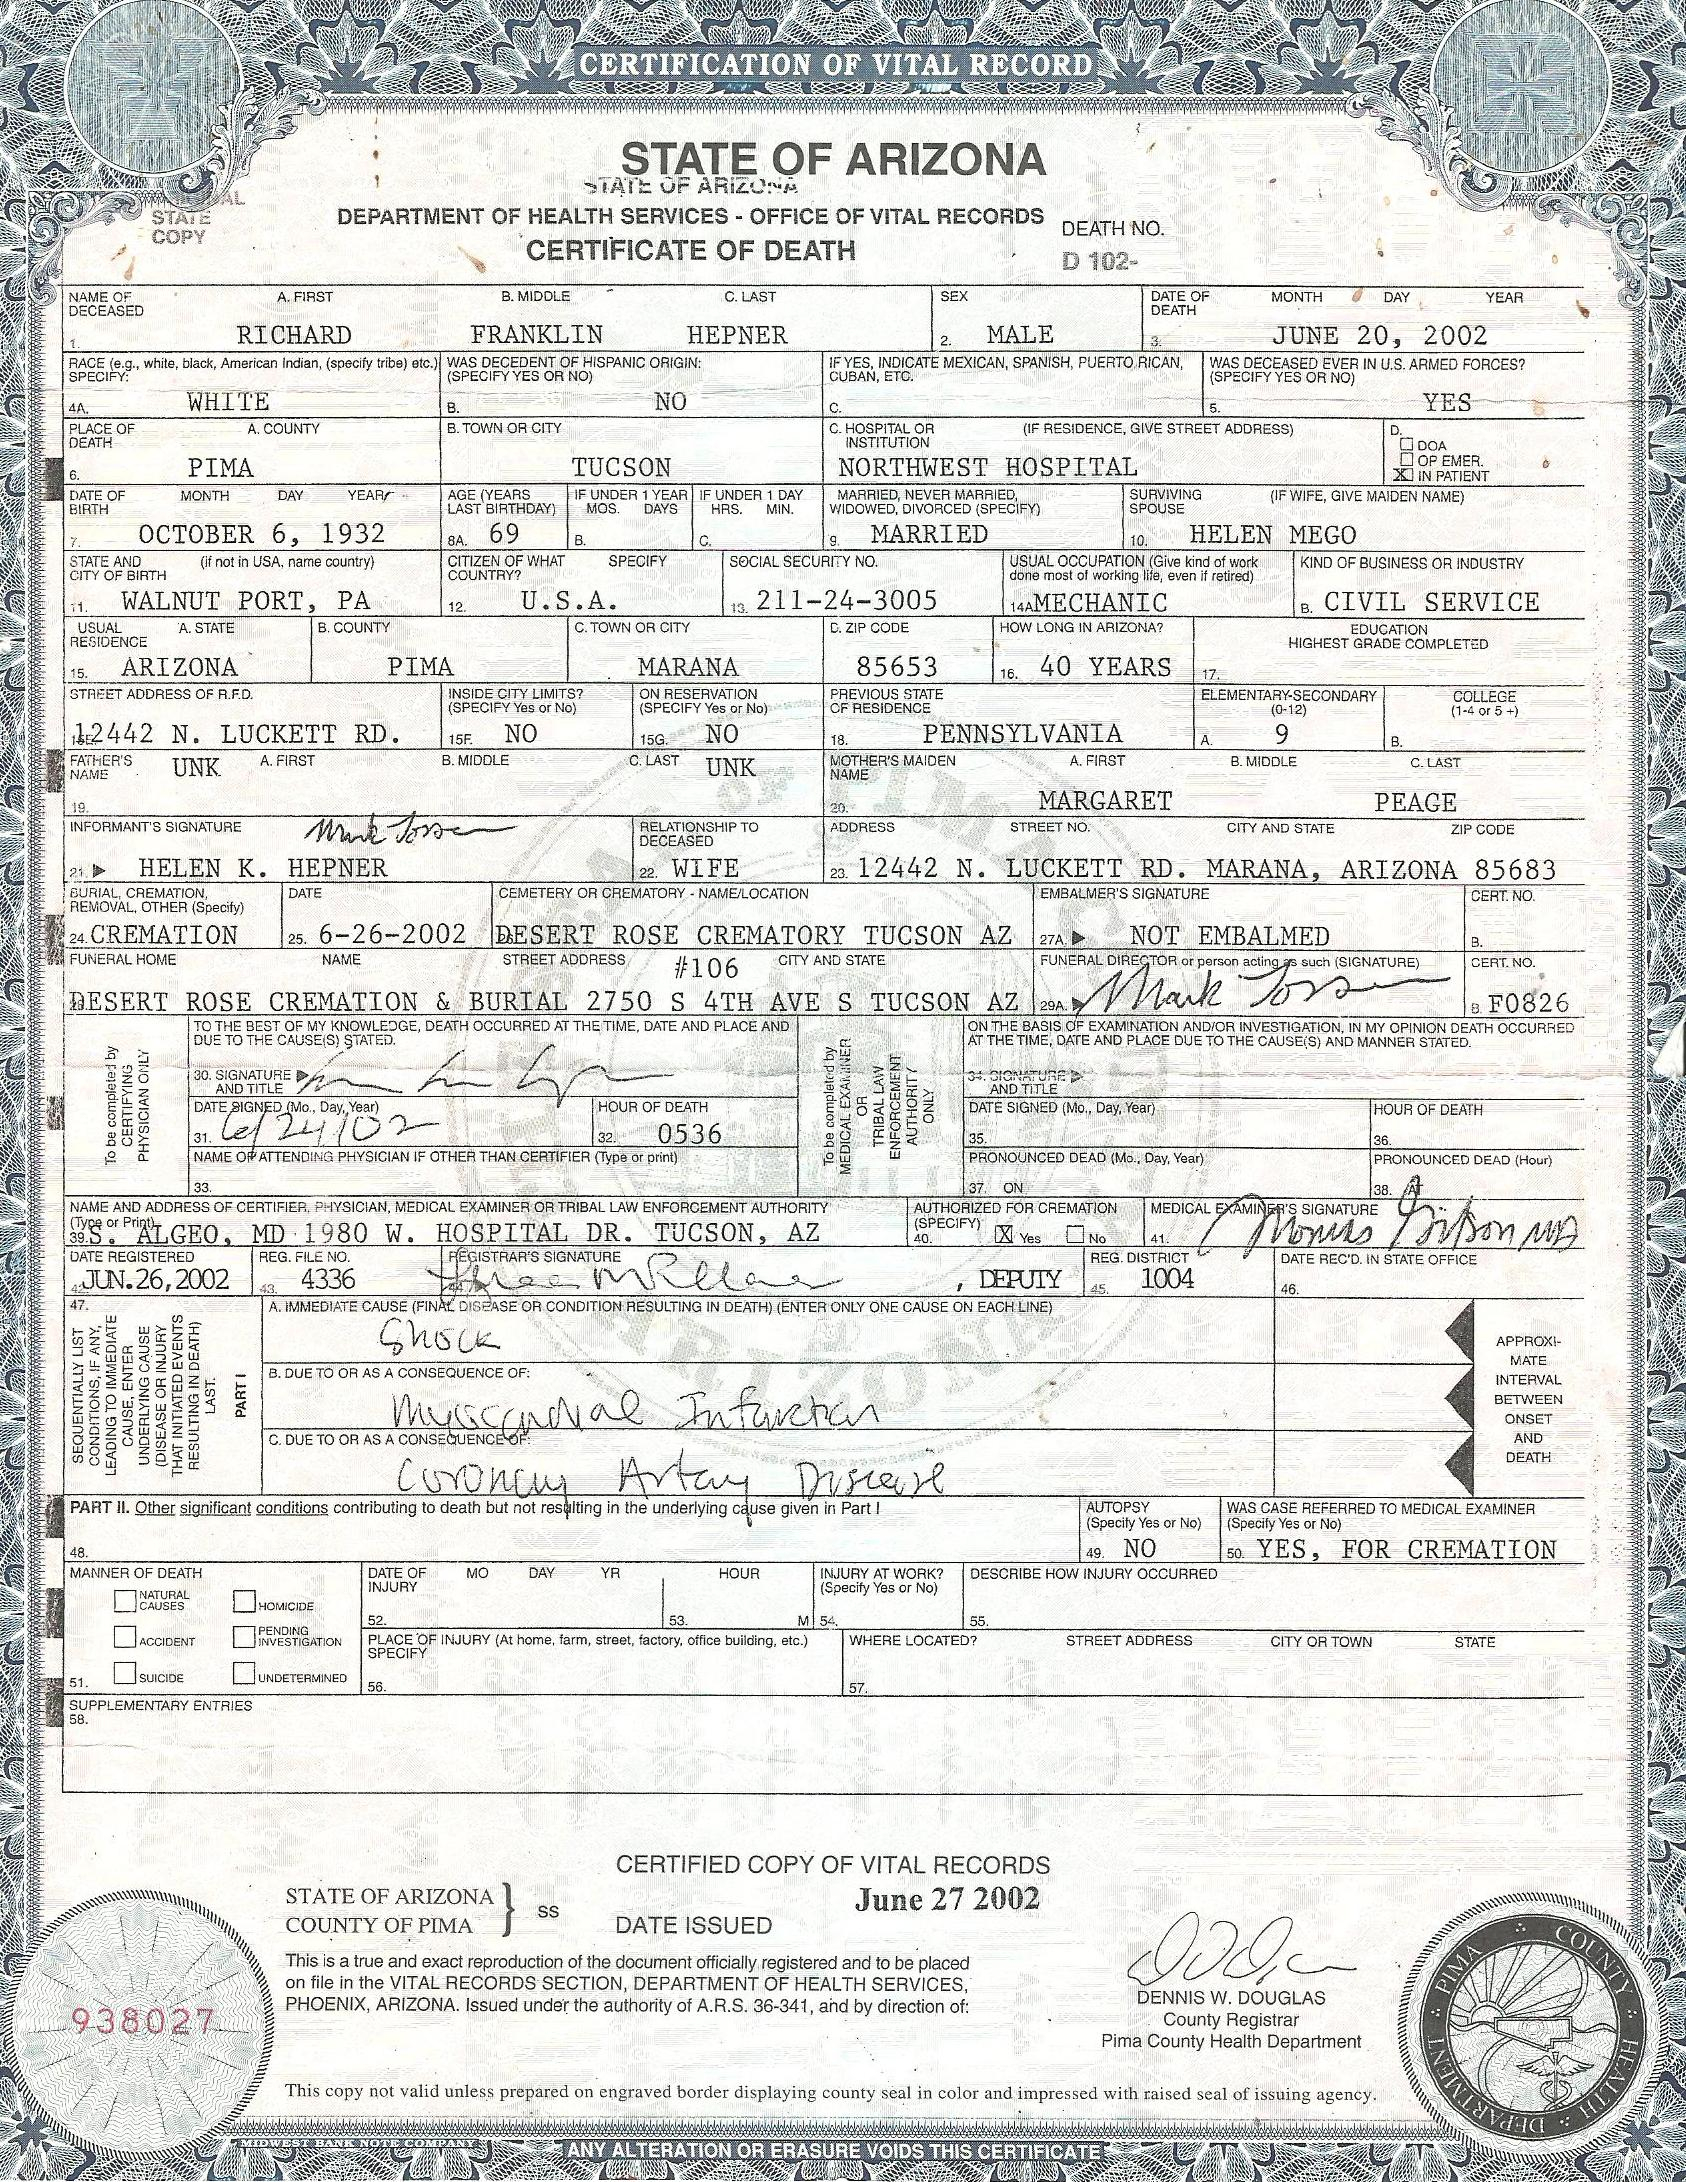 CERTIFICATION OF VITAL RECORD
STATE OF ARIZONA
STATE OF ARIZONA
STATE
COPY
DEPARTMENT OF HEALTH SERVICES - OFFICE OF VITAL RECORDS
CERTIFICATE OF DEATH
DEATH NO.
D 102-
NAME OF DECEASED A. FIRST B. MIDDLE C. LAST SEX DATE OF DEATH MONTH DAY YEAR
1. RICHARD FRANKLIN HEPNER 2. MALE 3. JUNE 20, 2002
RACE (e.g., white, black, American Indian, (specify tribe) etc.) SPECIFY: WAS DECEDENT OF HISPANIC ORIGIN: (SPECIFY YES OR NO) IF YES, INDICATE MEXICAN, SPANISH, PUERTO RICAN, CUBAN, ETC. WAS DECEASED EVER IN U.S. ARMED FORCES? (SPECIFY YES OR NO)
4A. WHITE B. NO C. 5. YES
PLACE OF DEATH A. COUNTY B. TOWN OR CITY C. HOSPITAL OR INSTITUTION (IF RESIDENCE, GIVE STREET ADDRESS) D.
DOA
OP EMER.
X IN PATIENT
6. PIMA TUCSON NORTHWEST HOSPITAL
DATE OF BIRTH MONTH DAY YEAR AGE (YEARS LAST BIRTHDAY) IF UNDER 1 YEAR MOS. DAYS IF UNDER 1 DAY HRS. MIN. MARRIED, NEVER MARRIED, WIDOWED, DIVORCED (SPECIFY) SURVIVING SPOUSE (IF WIFE, GIVE MAIDEN NAME)
7. OCTOBER 6, 1932 8A. 69 B. C. 9. MARRIED 10. HELEN MEGO
STATE AND CITY OF BIRTH (if not in USA, name country) CITIZEN OF WHAT COUNTRY? SPECIFY SOCIAL SECURITY NO. USUAL OCCUPATION (Give kind of work done most of working life, even if retired) KIND OF BUSINESS OR INDUSTRY
11. WALNUT PORT, PA 12. U.S.A. 13. 211-24-3005 14A. MECHANIC B. CIVIL SERVICE
USUAL RESIDENCE A. STATE B. COUNTY C. TOWN OR CITY D. ZIP CODE HOW LONG IN ARIZONA? EDUCATION HIGHEST GRADE COMPLETED
15. ARIZONA PIMA MARANA 85653 16. 40 YEARS 17.
STREET ADDRESS OF R.F.D. INSIDE CITY LIMITS? (SPECIFY Yes or No) ON RESERVATION (SPECIFY Yes or No) PREVIOUS STATE OF RESIDENCE ELEMENTARY-SECONDARY (0-12) COLLEGE (1-4 or 5 +)
15E. 12442 N. LUCKETT RD. 15F. NO 15G. NO 18. PENNSYLVANIA A. 9 B.
FATHER'S NAME UNK A. FIRST B. MIDDLE C. LAST UNK MOTHER'S MAIDEN NAME A. FIRST B. MIDDLE C. LAST
19. 20. MARGARET PEAGE
INFORMANT'S SIGNATURE RELATIONSHIP TO DECEASED ADDRESS STREET NO. CITY AND STATE ZIP CODE
21. HELEN K. HEPNER 22. WIFE 23. 12442 N. LUCKETT RD. MARANA, ARIZONA 85683
BURIAL, CREMATION, REMOVAL, OTHER (Specify) DATE CEMETERY OR CREMATORY - NAME/LOCATION EMBALMER'S SIGNATURE CERT. NO.
24. CREMATION 25. 6-26-2002 DESERT ROSE CREMATORY TUCSON AZ 27A. NOT EMBALMED B.
FUNERAL HOME NAME STREET ADDRESS #106 CITY AND STATE FUNERAL DIRECTOR or person acting as such (SIGNATURE) CERT. NO.
DESERT ROSE CREMATION & BURIAL 2750 S 4TH AVE S TUCSON AZ 29A. Mark B. F0826
To be completed by CERTIFYING PHYSICIAN ONLY
TO THE BEST OF MY KNOWLEDGE, DEATH OCCURRED AT THE TIME, DATE AND PLACE AND DUE TO THE CAUSE(S) STATED.
30. SIGNATURE AND TITLE
DATE SIGNED (Mo., Day, Year) HOUR OF DEATH
31. 6/24/02 32. 0536
NAME OF ATTENDING PHYSICIAN IF OTHER THAN CERTIFIER (Type or print)
33.
To be completed by MEDICAL EXAMINER OR TRIBAL LAW ENFORCEMENT AUTHORITY ONLY
ON THE BASIS OF EXAMINATION AND/OR INVESTIGATION, IN MY OPINION DEATH OCCURRED AT THE TIME, DATE AND PLACE DUE TO THE CAUSE(S) AND MANNER STATED.
34. SIGNATURE AND TITLE
DATE SIGNED (Mo., Day, Year) HOUR OF DEATH
35. 36.
PRONOUNCED DEAD (Mo., Day, Year) PRONOUNCED DEAD (Hour)
37. ON 38. AT
NAME AND ADDRESS OF CERTIFIER, PHYSICIAN, MEDICAL EXAMINER OR TRIBAL LAW ENFORCEMENT AUTHORITY (Type or Print) AUTHORIZED FOR CREMATION (SPECIFY) MEDICAL EXAMINER'S SIGNATURE
39. S. ALGEO, MD 1980 W. HOSPITAL DR. TUCSON, AZ 40. X Yes No 41.
DATE REGISTERED REG. FILE NO. REGISTRAR'S SIGNATURE REG. DISTRICT DATE REC'D. IN STATE OFFICE
42. JUN.26,2002 43. 4336 , DEPUTY 45. 1004 46.
47.
SEQUENTIALLY LIST CONDITIONS, IF ANY, LEADING TO IMMEDIATE CAUSE, ENTER UNDERLYING CAUSE (DISEASE OR INJURY THAT INITIATED EVENTS RESULTING IN DEATH) LAST.
PART I
A. IMMEDIATE CAUSE (FINAL DISEASE OR CONDITION RESULTING IN DEATH) (ENTER ONLY ONE CAUSE ON EACH LINE)
Shock
B. DUE TO OR AS A CONSEQUENCE OF:
Myocardial Infarction
C. DUE TO OR AS A CONSEQUENCE OF:
Coronary Artery Disease
APPROXI-
MATE
INTERVAL
BETWEEN
ONSET
AND
DEATH
PART II. Other significant conditions contributing to death but not resulting in the underlying cause given in Part I AUTOPSY (Specify Yes or No) WAS CASE REFERRED TO MEDICAL EXAMINER (Specify Yes or No)
48. 49. NO 50. YES, FOR CREMATION
MANNER OF DEATH
NATURAL CAUSES HOMICIDE
ACCIDENT PENDING INVESTIGATION
51. SUICIDE UNDETERMINED
DATE OF INJURY MO DAY YR HOUR INJURY AT WORK? (Specify Yes or No) DESCRIBE HOW INJURY OCCURRED
52. 53. M 54. 55.
PLACE OF INJURY (At home, farm, street, factory, office building, etc.) SPECIFY WHERE LOCATED? STREET ADDRESS CITY OR TOWN STATE
56. 57.
SUPPLEMENTARY ENTRIES
58.
CERTIFIED COPY OF VITAL RECORDS
STATE OF ARIZONA
COUNTY OF PIMA
} ss
June 27 2002
DATE ISSUED
This is a true and exact reproduction of the document officially registered and to be placed
on file in the VITAL RECORDS SECTION, DEPARTMENT OF HEALTH SERVICES,
PHOENIX, ARIZONA. Issued under the authority of A.R.S. 36-341, and by direction of:
DENNIS W. DOUGLAS
County Registrar
Pima County Health Department
938027
PIMA COUNTY HEALTH DEPARTMENT
This copy not valid unless prepared on engraved border displaying county seal in color and impressed with raised seal of issuing agency.
MIDWEST BANK NOTE COMPANY
ANY ALTERATION OR ERASURE VOIDS THIS CERTIFICATE